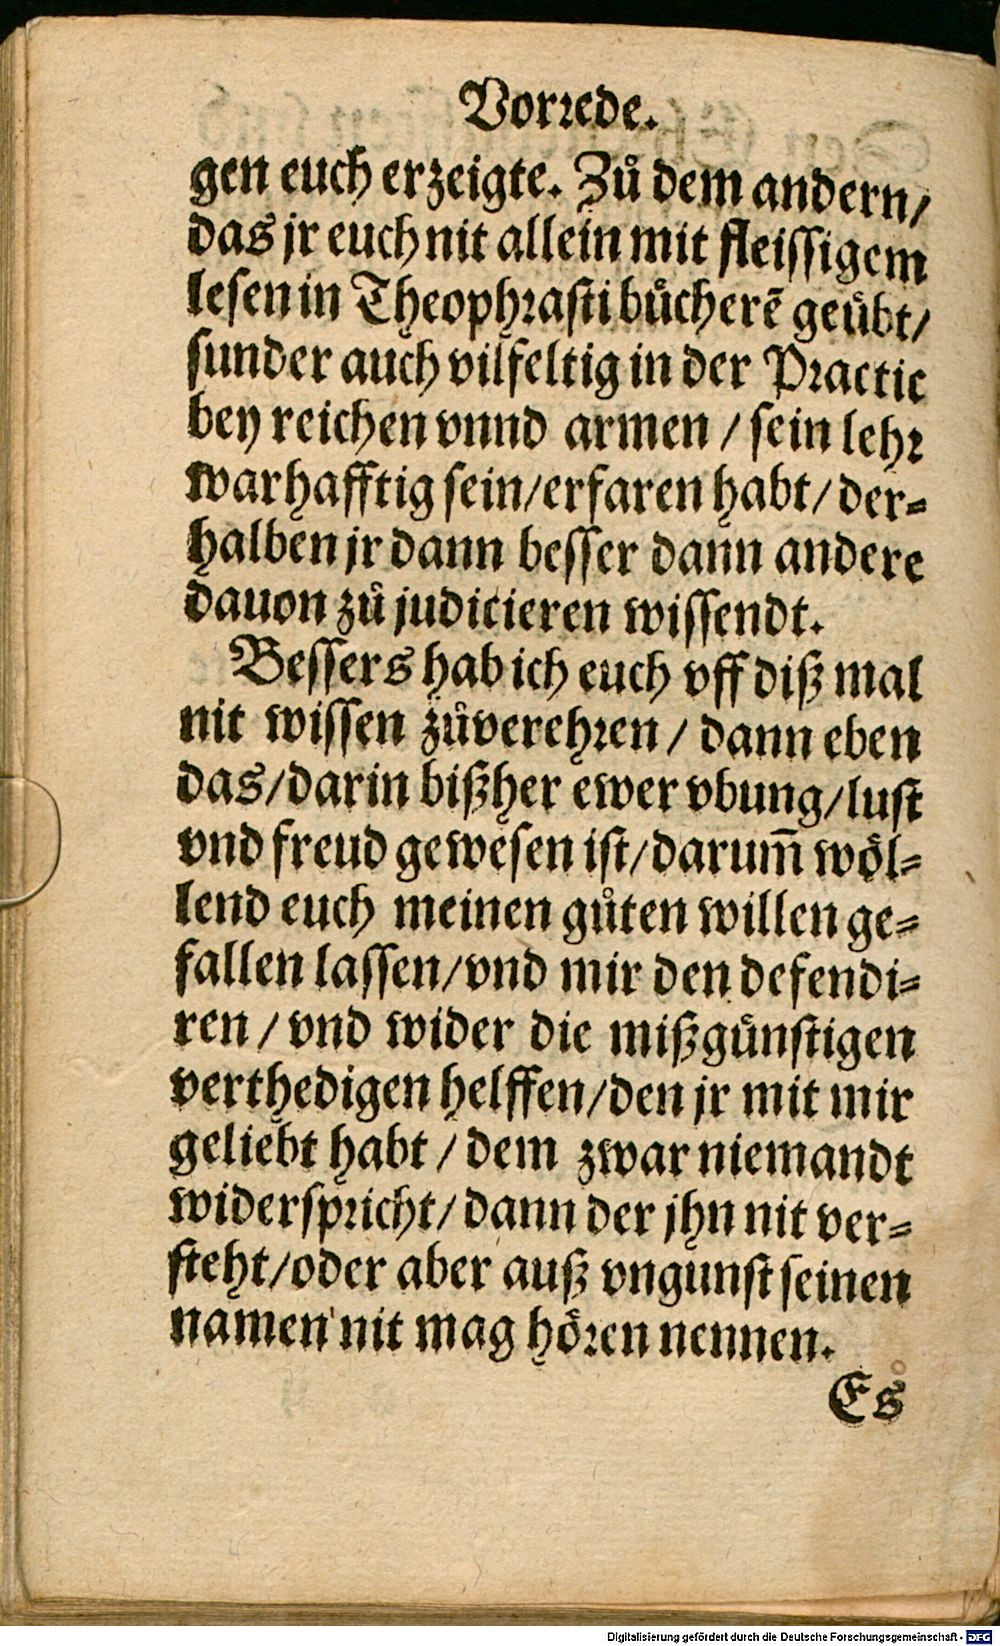 Vorrede.
gen euch erzeigte. Zů dem andern/
das jr euch nit allein mit fleissigem
lesen in Theophrasti bůcherẽ geübt/
sunder auch vilfeltig in der Practic
bey reichen vnnd armen / sein lehr
warhafftig sein/erfaren habt/ der-
halben jr dann besser dann andere
dauon zů judicieren wissendt.
Bessers hab ich euch vff diß mal
nit wissen zůverehren / dann eben
das/darin bißher ewer vbung/lust
vnd freud gewesen ist/darum̃ wöl-
lend euch meinen gůten willen ge-
fallen lassen/vnd mir den defendi-
ren / vnd wider die mißgünstigen
verthedigen helffen/den jr mit mir
geliebt habt / dem zwar niemandt
widerspricht/ dann der jhn nit ver-
steht/oder aber auß vngunst seinen
namen nit mag hören nennen.
Es
Digitalisierung gefördert durch die Deutsche Forschungsgemeinschaft - DFG